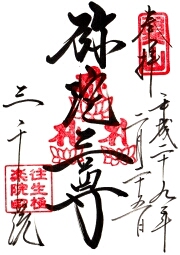 奉拝
平成二十九年
二月二十五日
弥陀三尊
三千院
往生極
楽院印